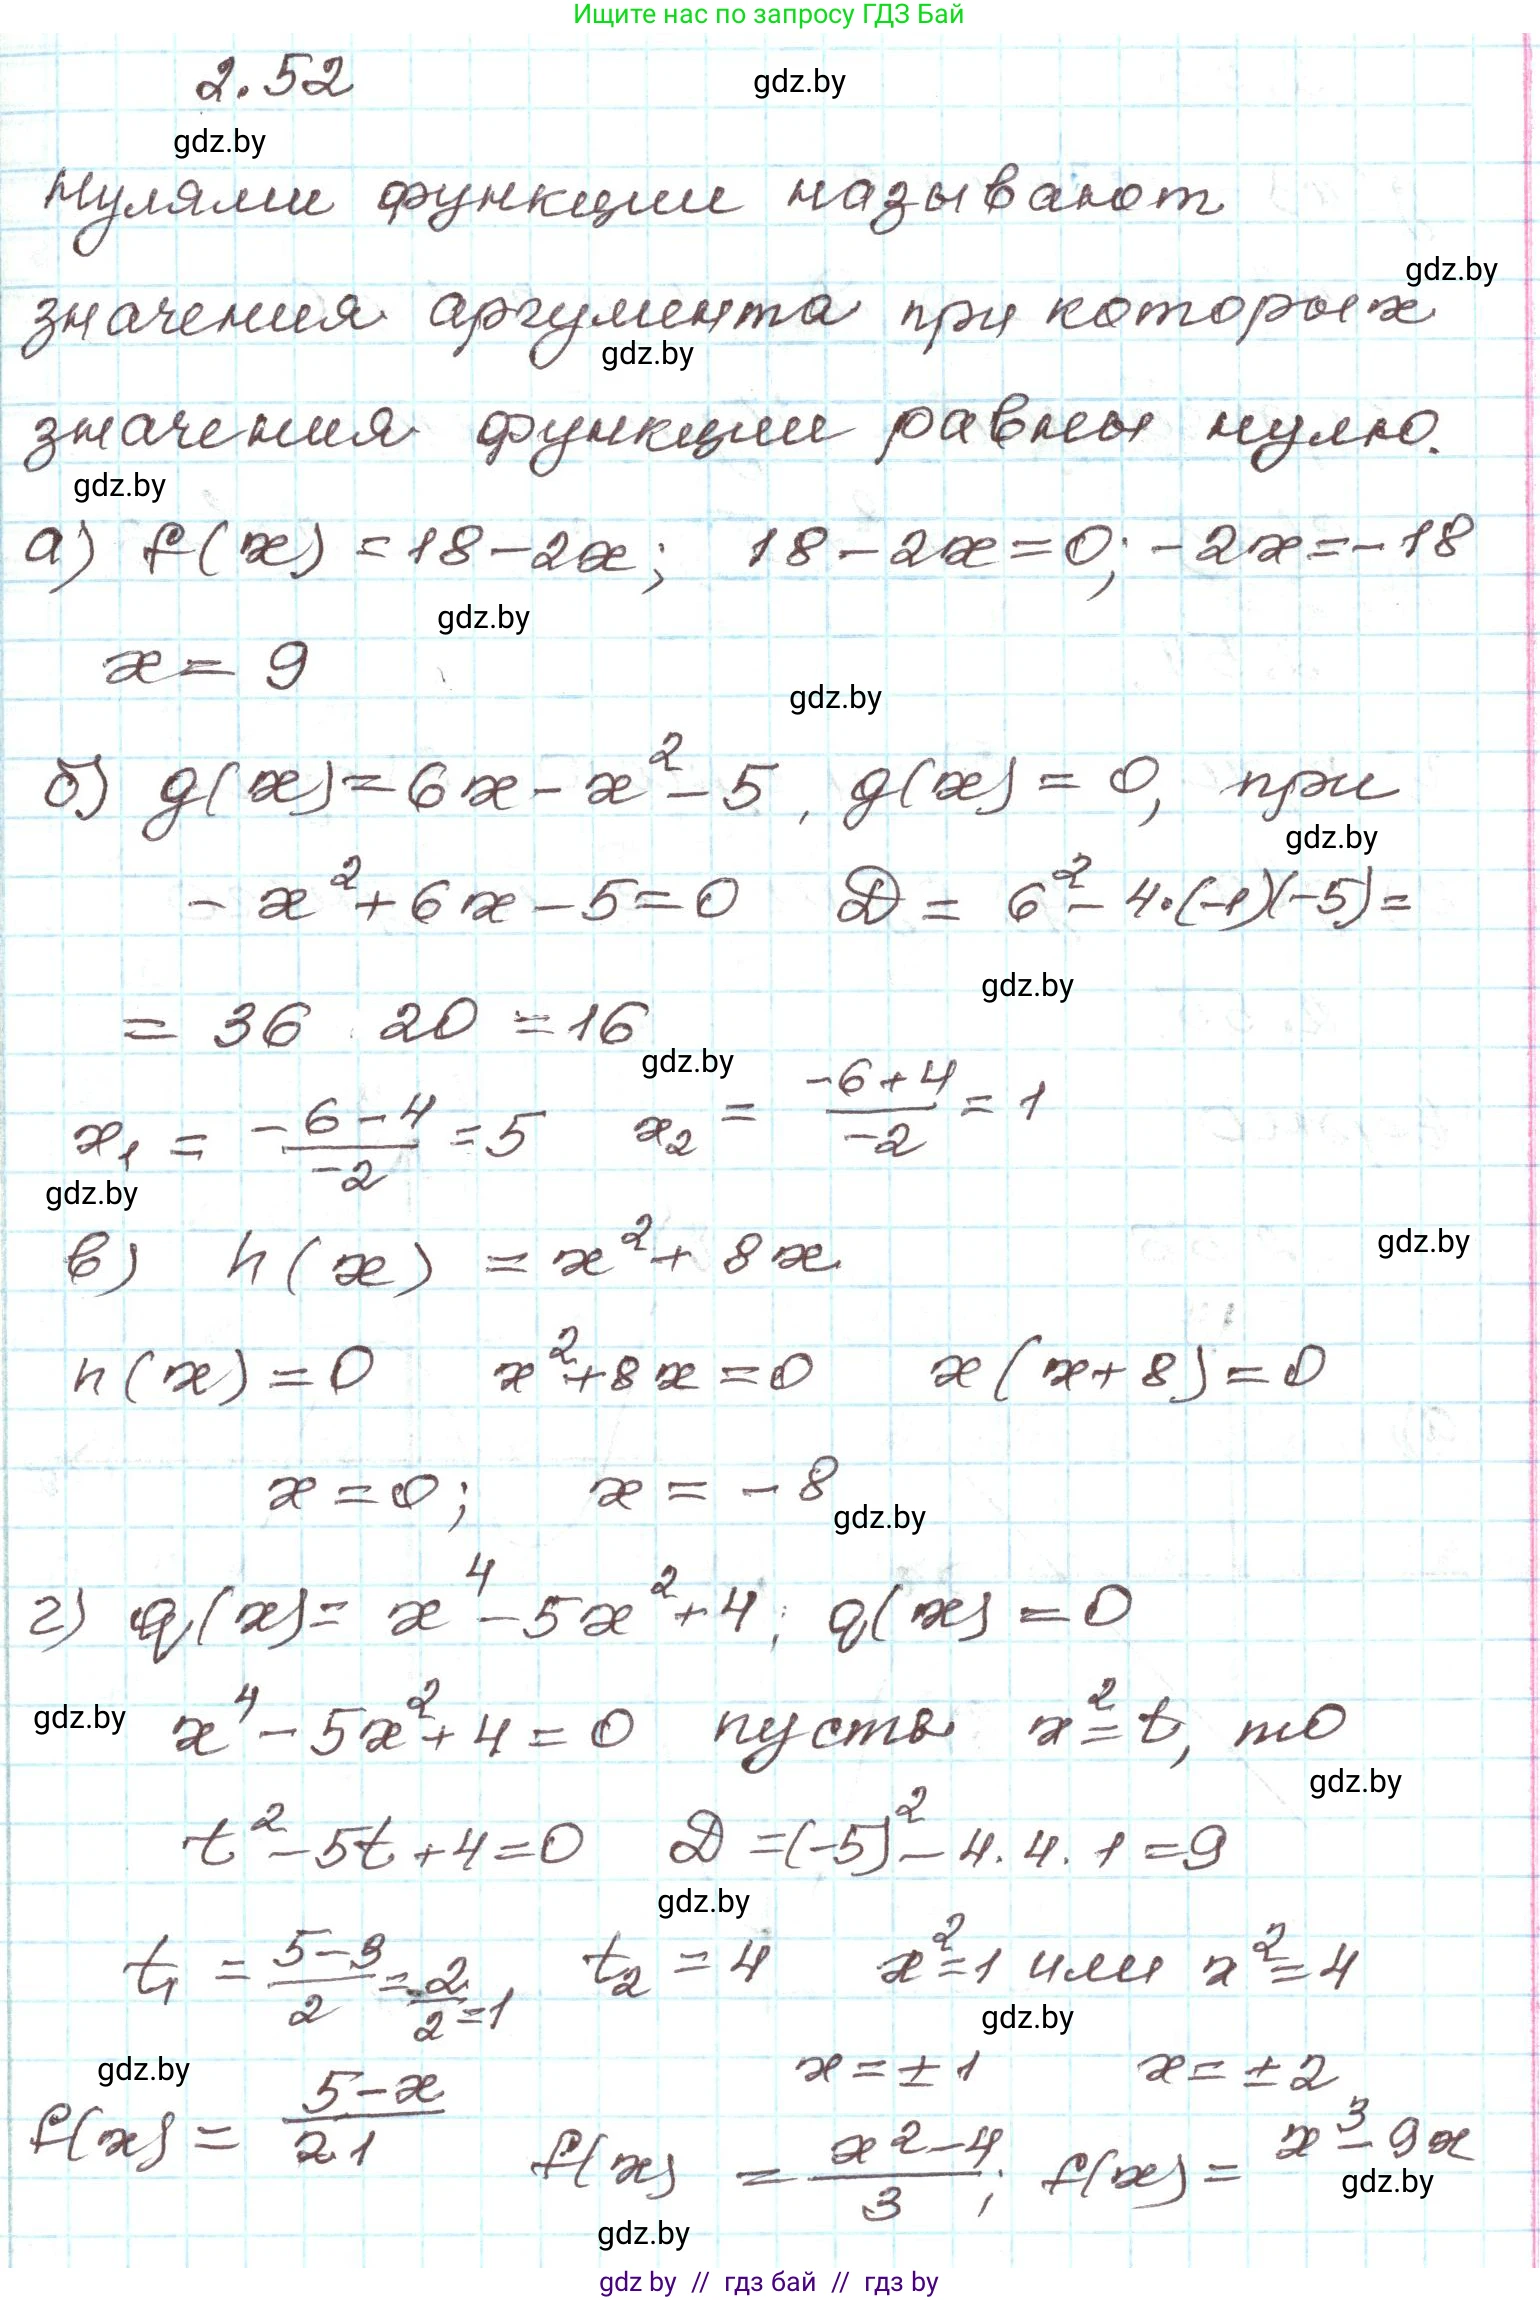 Ищите нас по запросу ГДЗ Бай
2.52
gdz.by
gdz.by
Нулями функции называют
gdz.by
значения аргумента при которых
gdz.by
значения функции равны нулю.
gdz.by
а) f(x) = 18 - 2x; 18 - 2x = 0; -2x = -18
gdz.by
x = 9
gdz.by
б) g(x) = 6x - x² - 5, g(x) = 0, при
gdz.by
- x² + 6x - 5 = 0 D = 6² - 4·(-1)(-5) =
gdz.by
= 36 20 = 16
gdz.by
x₁ = (-6-4)/(-2) = 5 x₂ = (-6+4)/(-2) = 1
gdz.by
gdz.by
в) h(x) = x² + 8x
h(x) = 0 x² + 8x = 0 x(x+8) = 0
x = 0; x = -8
gdz.by
г) q(x) = x⁴ - 5x² + 4; q(x) = 0
gdz.by
x⁴ - 5x² + 4 = 0 пусть x² = t, то
gdz.by
t² - 5t + 4 = 0 D = (-5)² - 4·4·1 = 9
gdz.by
t₁ = (5-3)/2 = 2/2 = 1 t₂ = 4 x² = 1 или x² = 4
gdz.by
gdz.by
x = ±1 x = ±2
f(x) = (5-x)/2.1 f(x) = (x²-4)/3; f(x) = x³ - 9x
gdz.by
gdz.by
gdz by // гдз бай // гдз by